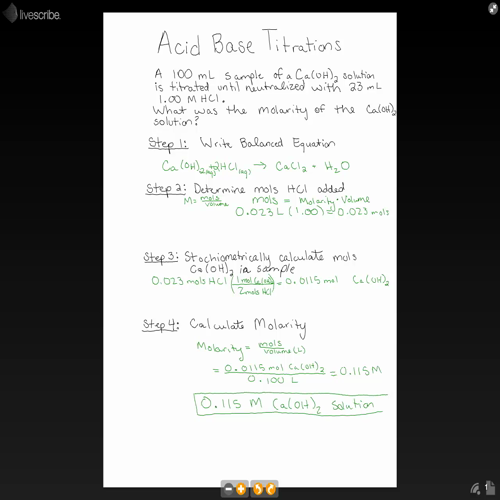 livescribe
Acid Base Titrations
A 100 mL sample of a Ca(OH)₂ solution
is titrated until neutralized with 23 mL
1.00 M HCl.
What was the molarity of the Ca(OH)₂
solution?
Step 1: Write Balanced Equation
Ca(OH)₂(aq) + 2HCl(aq) → CaCl₂ + H₂O
Step 2: Determine mols HCl added
M = mols/volume mols = Molarity · Volume
0.023 L (1.00) = 0.023 mols
Step 3: Stochiometrically calculate mols
Ca(OH)₂ in sample
0.023 mols HCl (1 mol Ca(OH)₂/2 mols HCl) = 0.0115 mol Ca(OH)₂
Step 4: Calculate Molarity
Molarity = mols/volume (L)
= 0.0115 mol Ca(OH)₂/0.100 L = 0.115 M
0.115 M Ca(OH)₂ solution
1